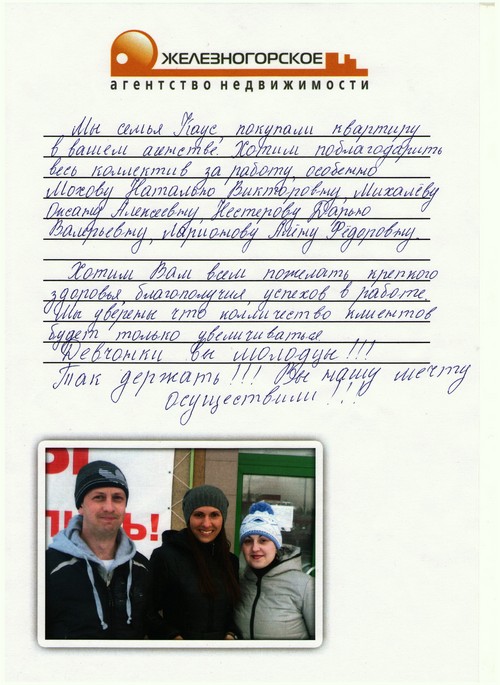 ЖЕЛЕЗНОГОРСКОЕ
агентство недвижимости
Мы семья Каус, покупали квартиру
в вашем агенстве. Хотим поблагодарить
весь коллектив за работу, особенно
Мохову Наталью Викторовну, Михалёву
Оксану Алексеевну, Нестерову Дарью
Валерьевну, Ларионову Алёну Фёдоровну.
Хотим Вам всем пожелать крепкого
здоровья, благополучия, успехов в работе.
Мы уверены что колличество клиентов
будет только увеличиваться
Девчонки вы молодцы!!!
Так держать!!! Вы нашу мечту
осуществили!!!
Ы
Ь!